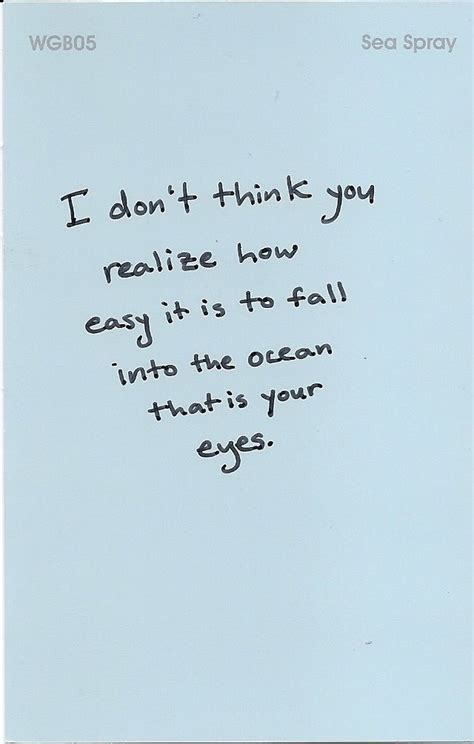 WGB05 Sea Spray
I don't think you
realize how
easy it is to fall
into the ocean
that is your
eyes.